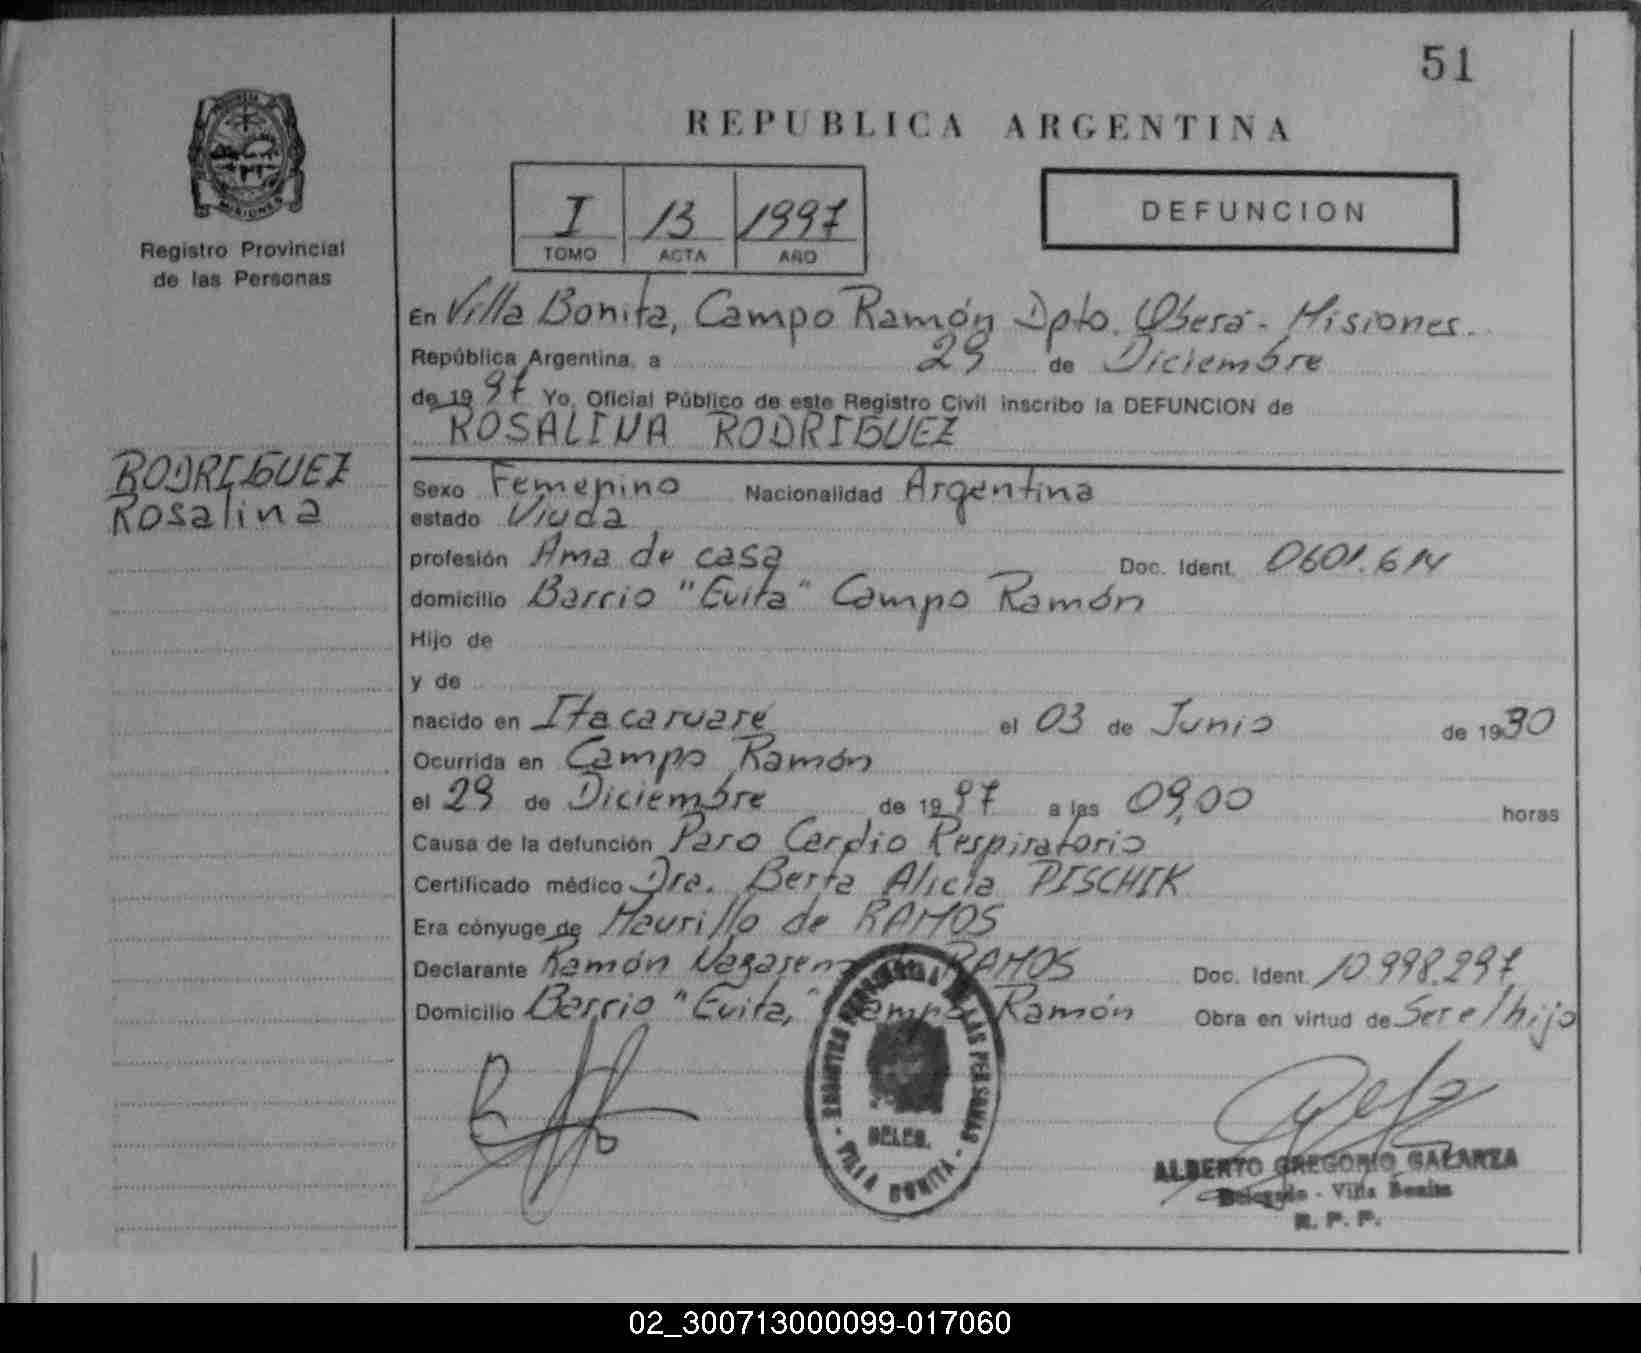 51
REPUBLICA ARGENTINA
MISIONES
Registro Provincial
de las Personas
I 13 1997
TOMO ACTA AÑO
DEFUNCION
En Villa Bonita, Campo Ramón Dpto. Oberá - Misiones.
República Argentina, a 29 de Diciembre
de 19 97 Yo, Oficial Público de este Registro Civil inscribo la DEFUNCION de
ROSALINA RODRIGUEZ
RODRIGUEZ
Rosalina
Sexo Femenino Nacionalidad Argentina
estado Viuda
profesión Ama de casa Doc. Ident. 0601.614
domicilio Barrio "Evita" Campo Ramón
Hijo de
y de
nacido en Itacaruare el 03 de Junio de 19 30
Ocurrida en Campo Ramón
el 29 de Diciembre de 19 97 a las 09,00 horas
Causa de la defunción Paro Cardio Respiratorio
Certificado médico Dra. Berta Alicia PISCHIK
Era cónyuge de Maurillo de RAMOS
Declarante Ramón Nazareno RAMOS Doc. Ident. 10.998.297
Domicilio Barrio "Evita," Campo Ramón Obra en virtud de Ser el hijo
REGISTRO PROVINCIAL DE LAS PERSONAS
DELEG.
- VILLA BONITA -
ALBERTO GREGORIO GALARZA
Delegado - Villa Bonita
R. P. P.
02_300713000099-017060